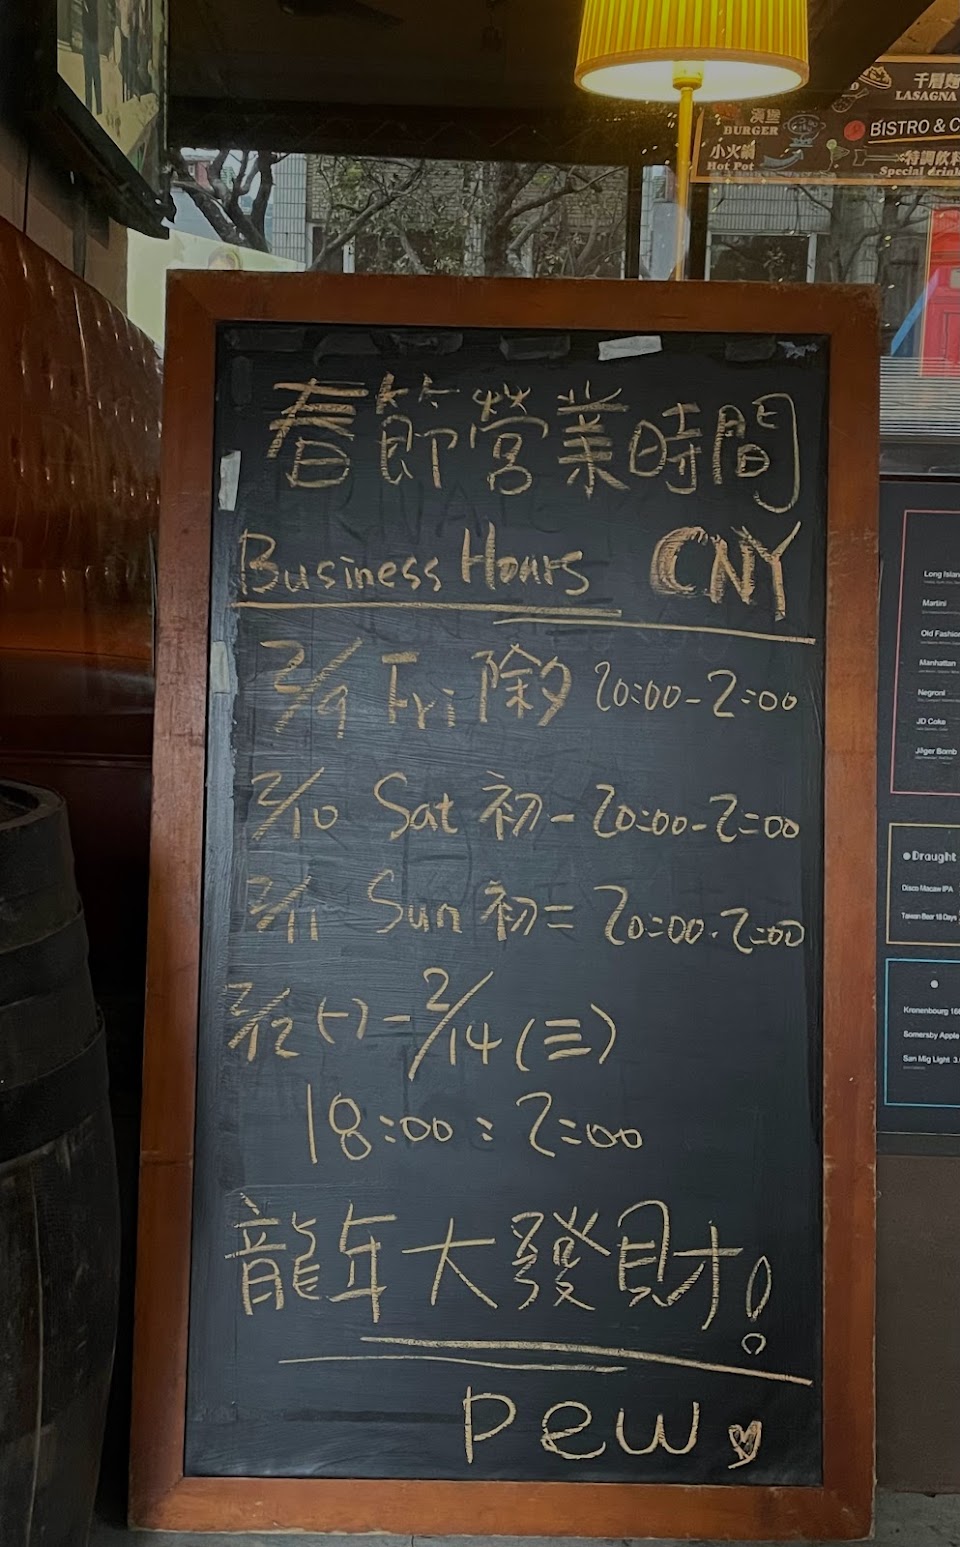 千層麵
LASAGNA
漢堡
BURGER
BISTRO & C
小火鍋
Hot Pot
特調飲料
Special drink
春節營業時間
Business Hours CNY
2/9 Fri 除夕 20:00-2:00
2/10 Sat 初一 20:00-2:00
2/11 Sun 初二 20:00-2:00
2/12(一)-2/14(三)
18:00:2:00
龍年大發財!
pew
Long Islan
Martini
Old Fashio
Manhattan
Negroni
JD Coke
Jäger Bomb
Draught
Disco Macaw IPA
Taiwan Beer 18 Days
Kronenbourg 166
Somersby Apple
San Mig Light 3.